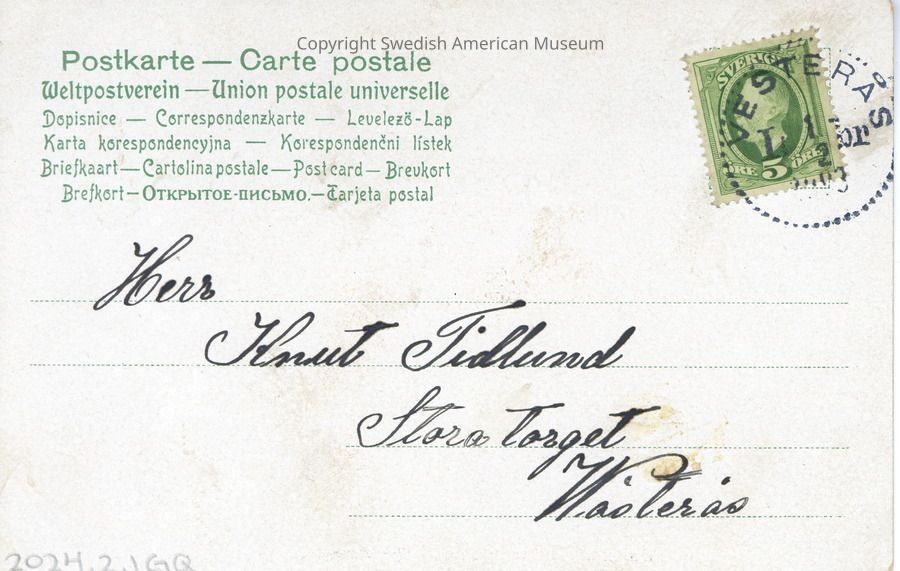 Copyright Swedish American Museum
Postkarte — Carte postale
Weltpostverein — Union postale universelle
Dopisnice — Correspondenzkarte — Levelező-Lap
Karta korespondencyjna — Korespondenční lístek
Briefkaart — Cartolina postale — Post card — Brevkort
Brefkort — Открытое-письмо. — Tarjeta postal
SVERIGE
5
ÖRE
VESTERÅS
Herr
Knut Tidlund
Stora torget
Wästerås
2024.2.1GQ